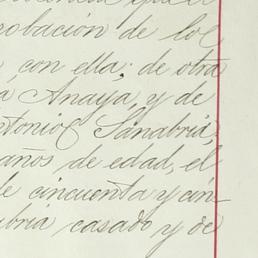 robación de los
con ella; de otra
Anaya, y de
ntonio Sanabria,
años de edad, el
de cincuenta y cin-
bria casado y de